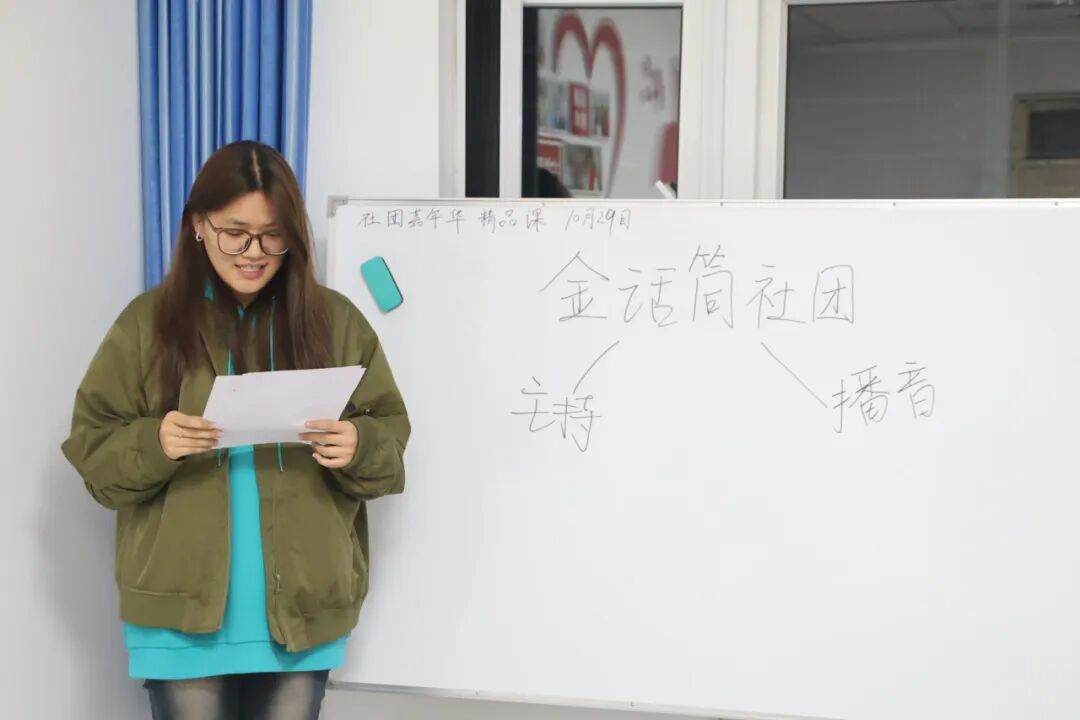 社团嘉年华 精品课 10月29日
金话筒社团
主持
播音